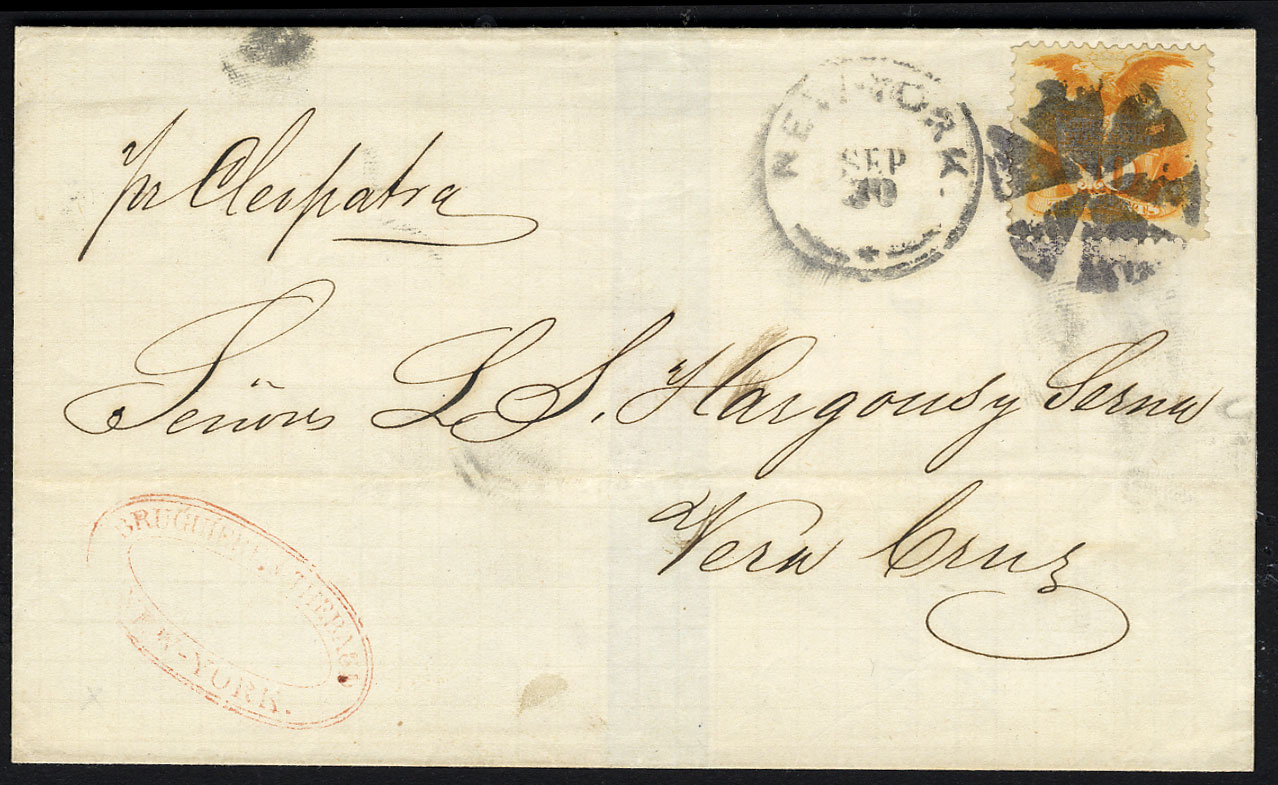 NEW-YORK.
SEP
30
pr Cleopatra
Señores L S. Hargous y Serna
Vera Cruz
NEW-YORK.